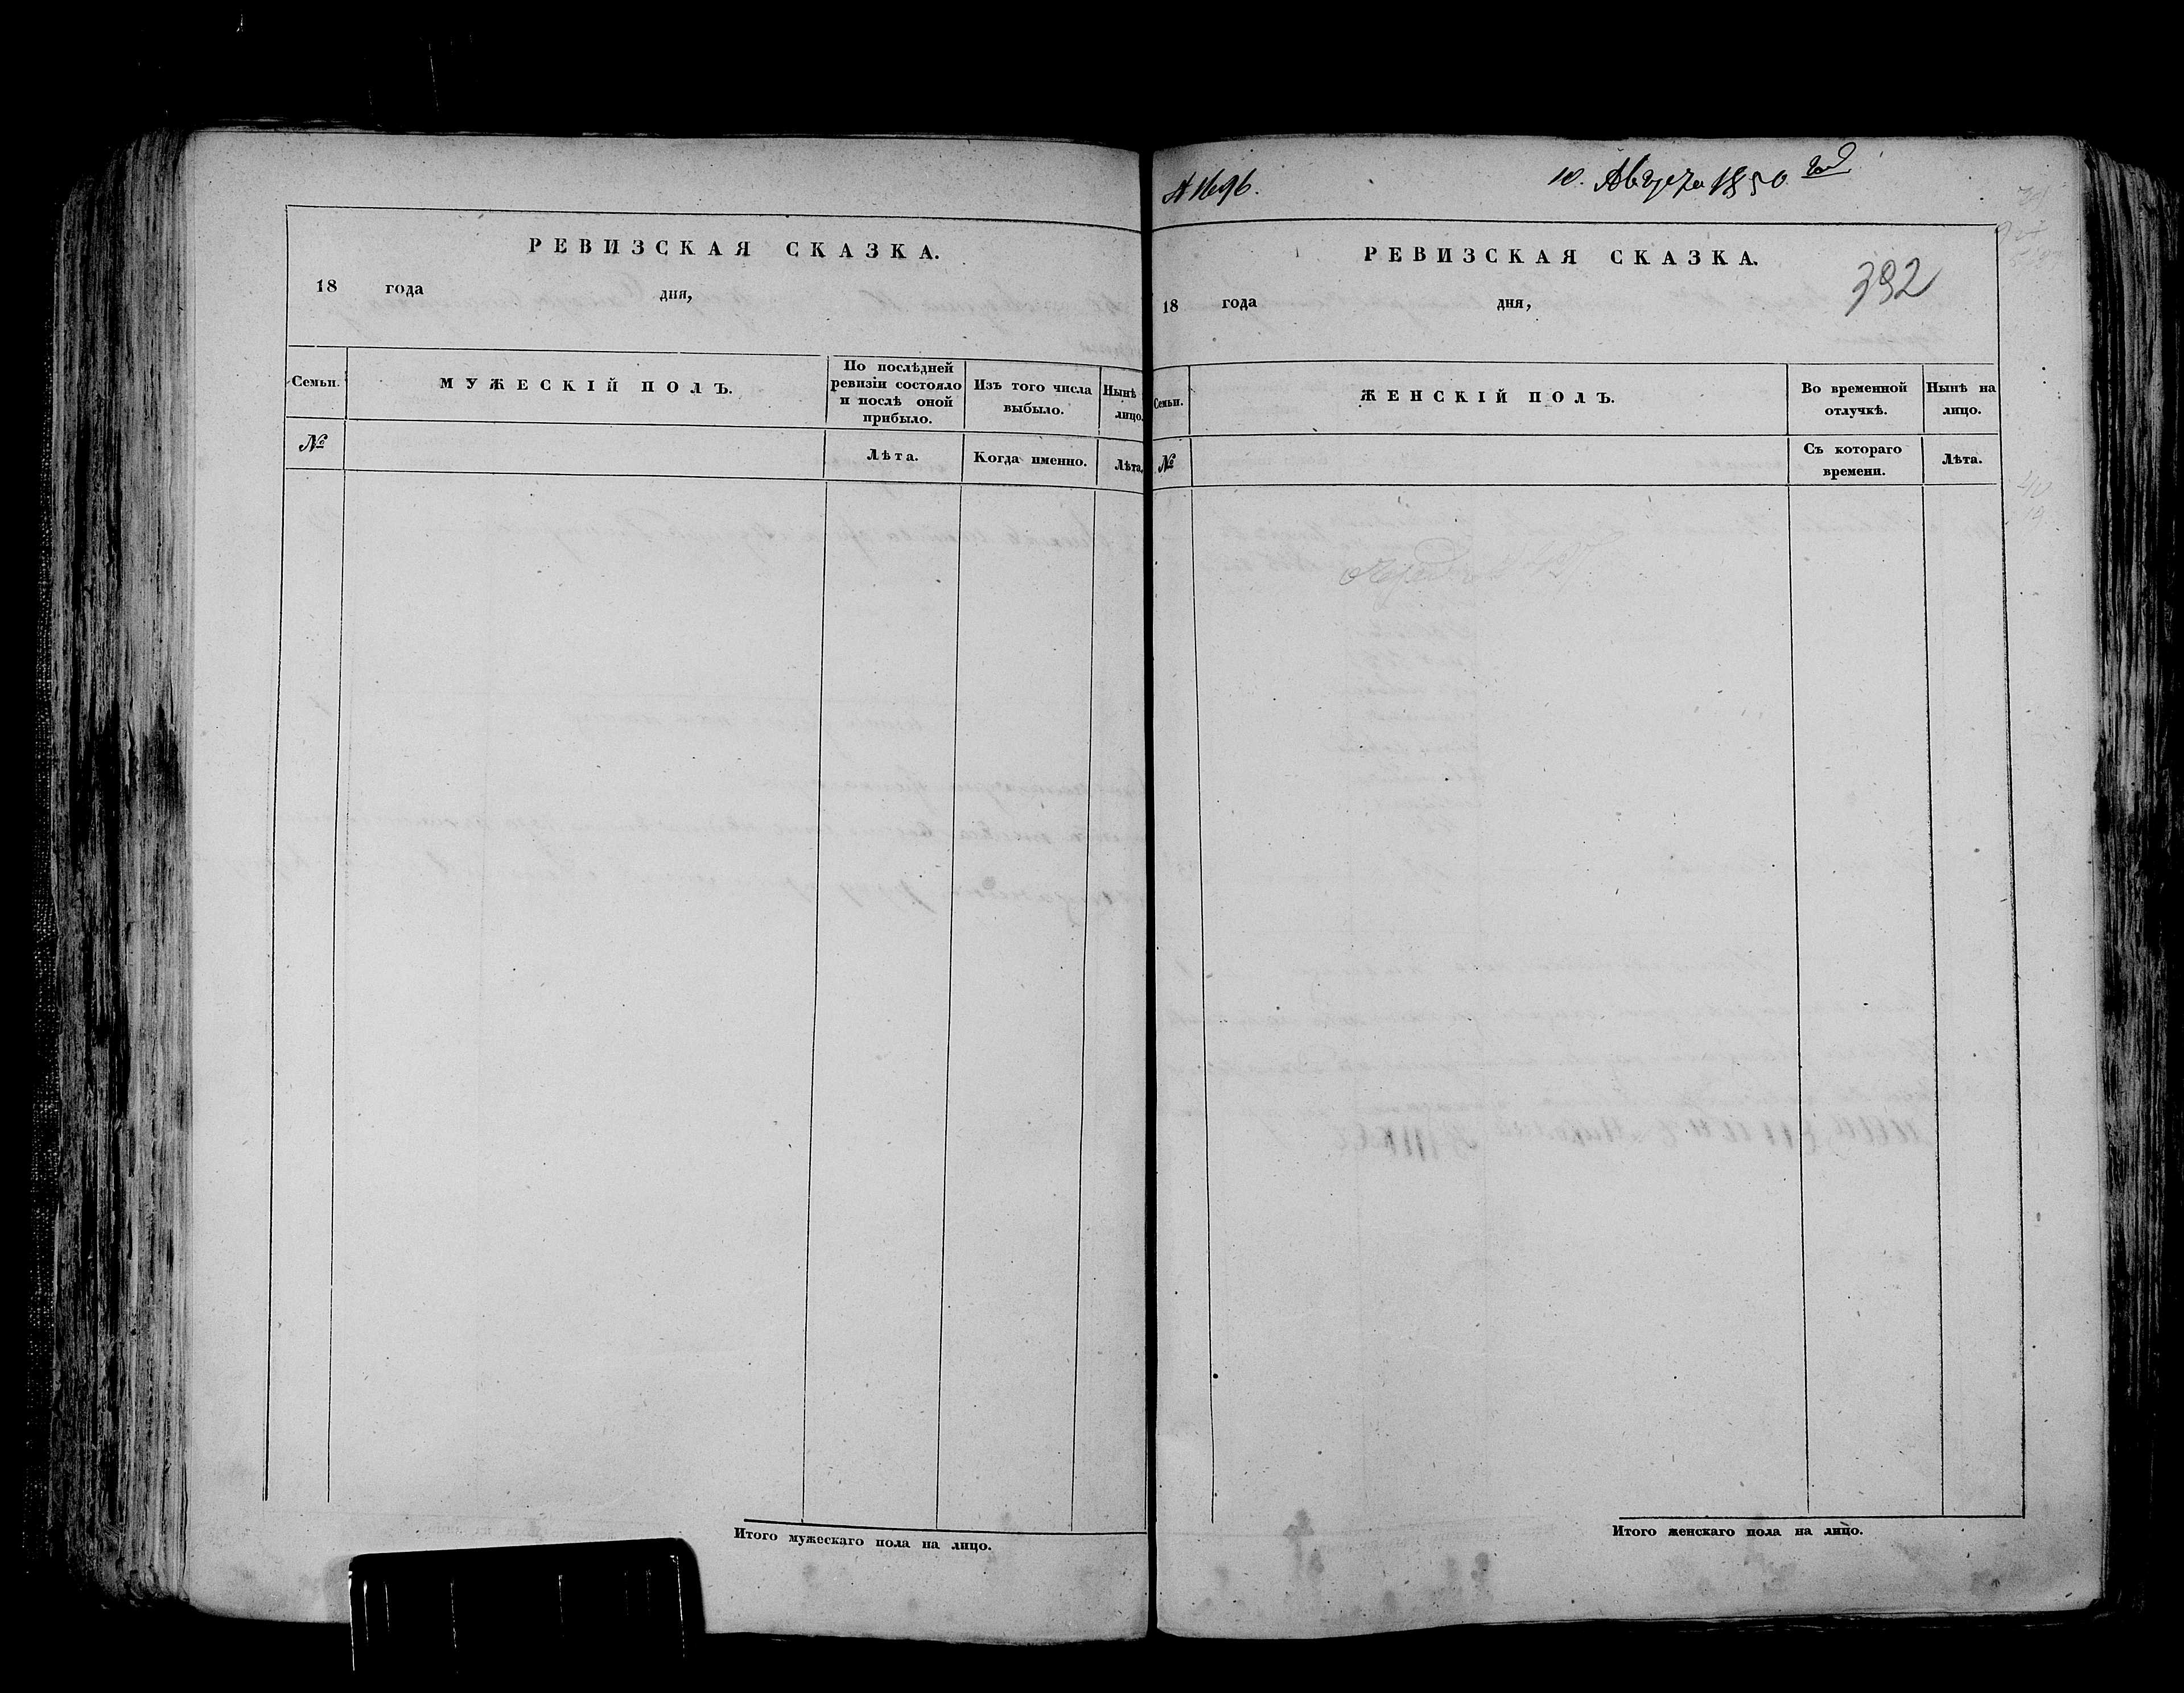 РЕВИЗСКАЯ СКАЗКА.
18 года дня,
Семьи.
МУЖЕСКІЙ ПОЛЪ.
По послѣдней
ревизіи состояло
и послѣ оной
прибыло.
Изъ того числа
выбыло.
Нынѣ
лицо.
№
Лѣта.
Когда именно.
Лѣта.
Итого мужескаго пола на лицо.
№ 1696.
10. Августа 1850 год
РЕВИЗСКАЯ СКАЗКА.
392
18 года дня,
Семьи.
ЖЕНСКІЙ ПОЛЪ.
Во временной
отлучкѣ.
Нынѣ на
лицо.
№
Съ котораго
времени.
Лѣта.
Итого женскаго пола на лицо.